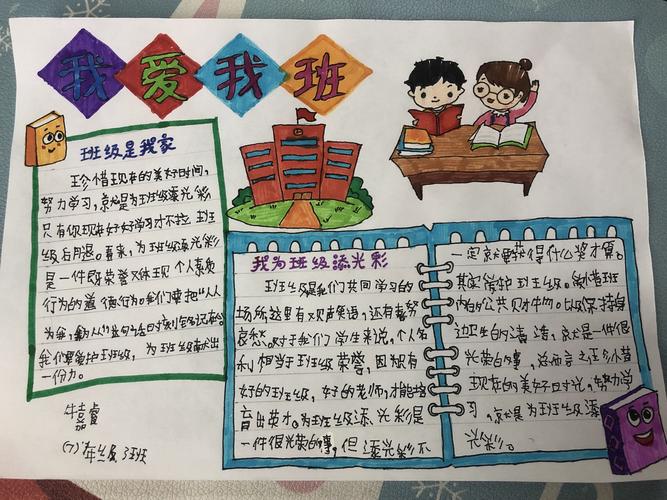 我爱我班
班级是我家
珍惜现在的美好时间,
努力学习,就是为班级添光彩
只有你现在好好学习才不拉 班
级后腿。再来,为班级添光彩
是一件既荣誉又体现 个人素质
行为的道德行为。我们要把"人人
为我,我为人人"这句话时刻牢记
我们要爱护班级, 为班级献出
一份力。
牛嘉睿
(7)年级3班
我为班级添光彩
班级是我们共同学习的
场所这里有欢声笑语,还有
哀愁。对于我们学生来说,个人名
利相当于班级荣誉,因为只有
好的班级, 好的老师,才能培
育出英才。为班级添光彩是
一件很光荣的事, 但添光彩不
一定就要获得什么奖才算。
其实爱护班级。爱惜班
内的公共财物。以级保持自
身边卫生的清洁,就是一件很
光荣的事,总而言之珍惜
现在的美好时光,努力学
习,就是为班级添
光彩。